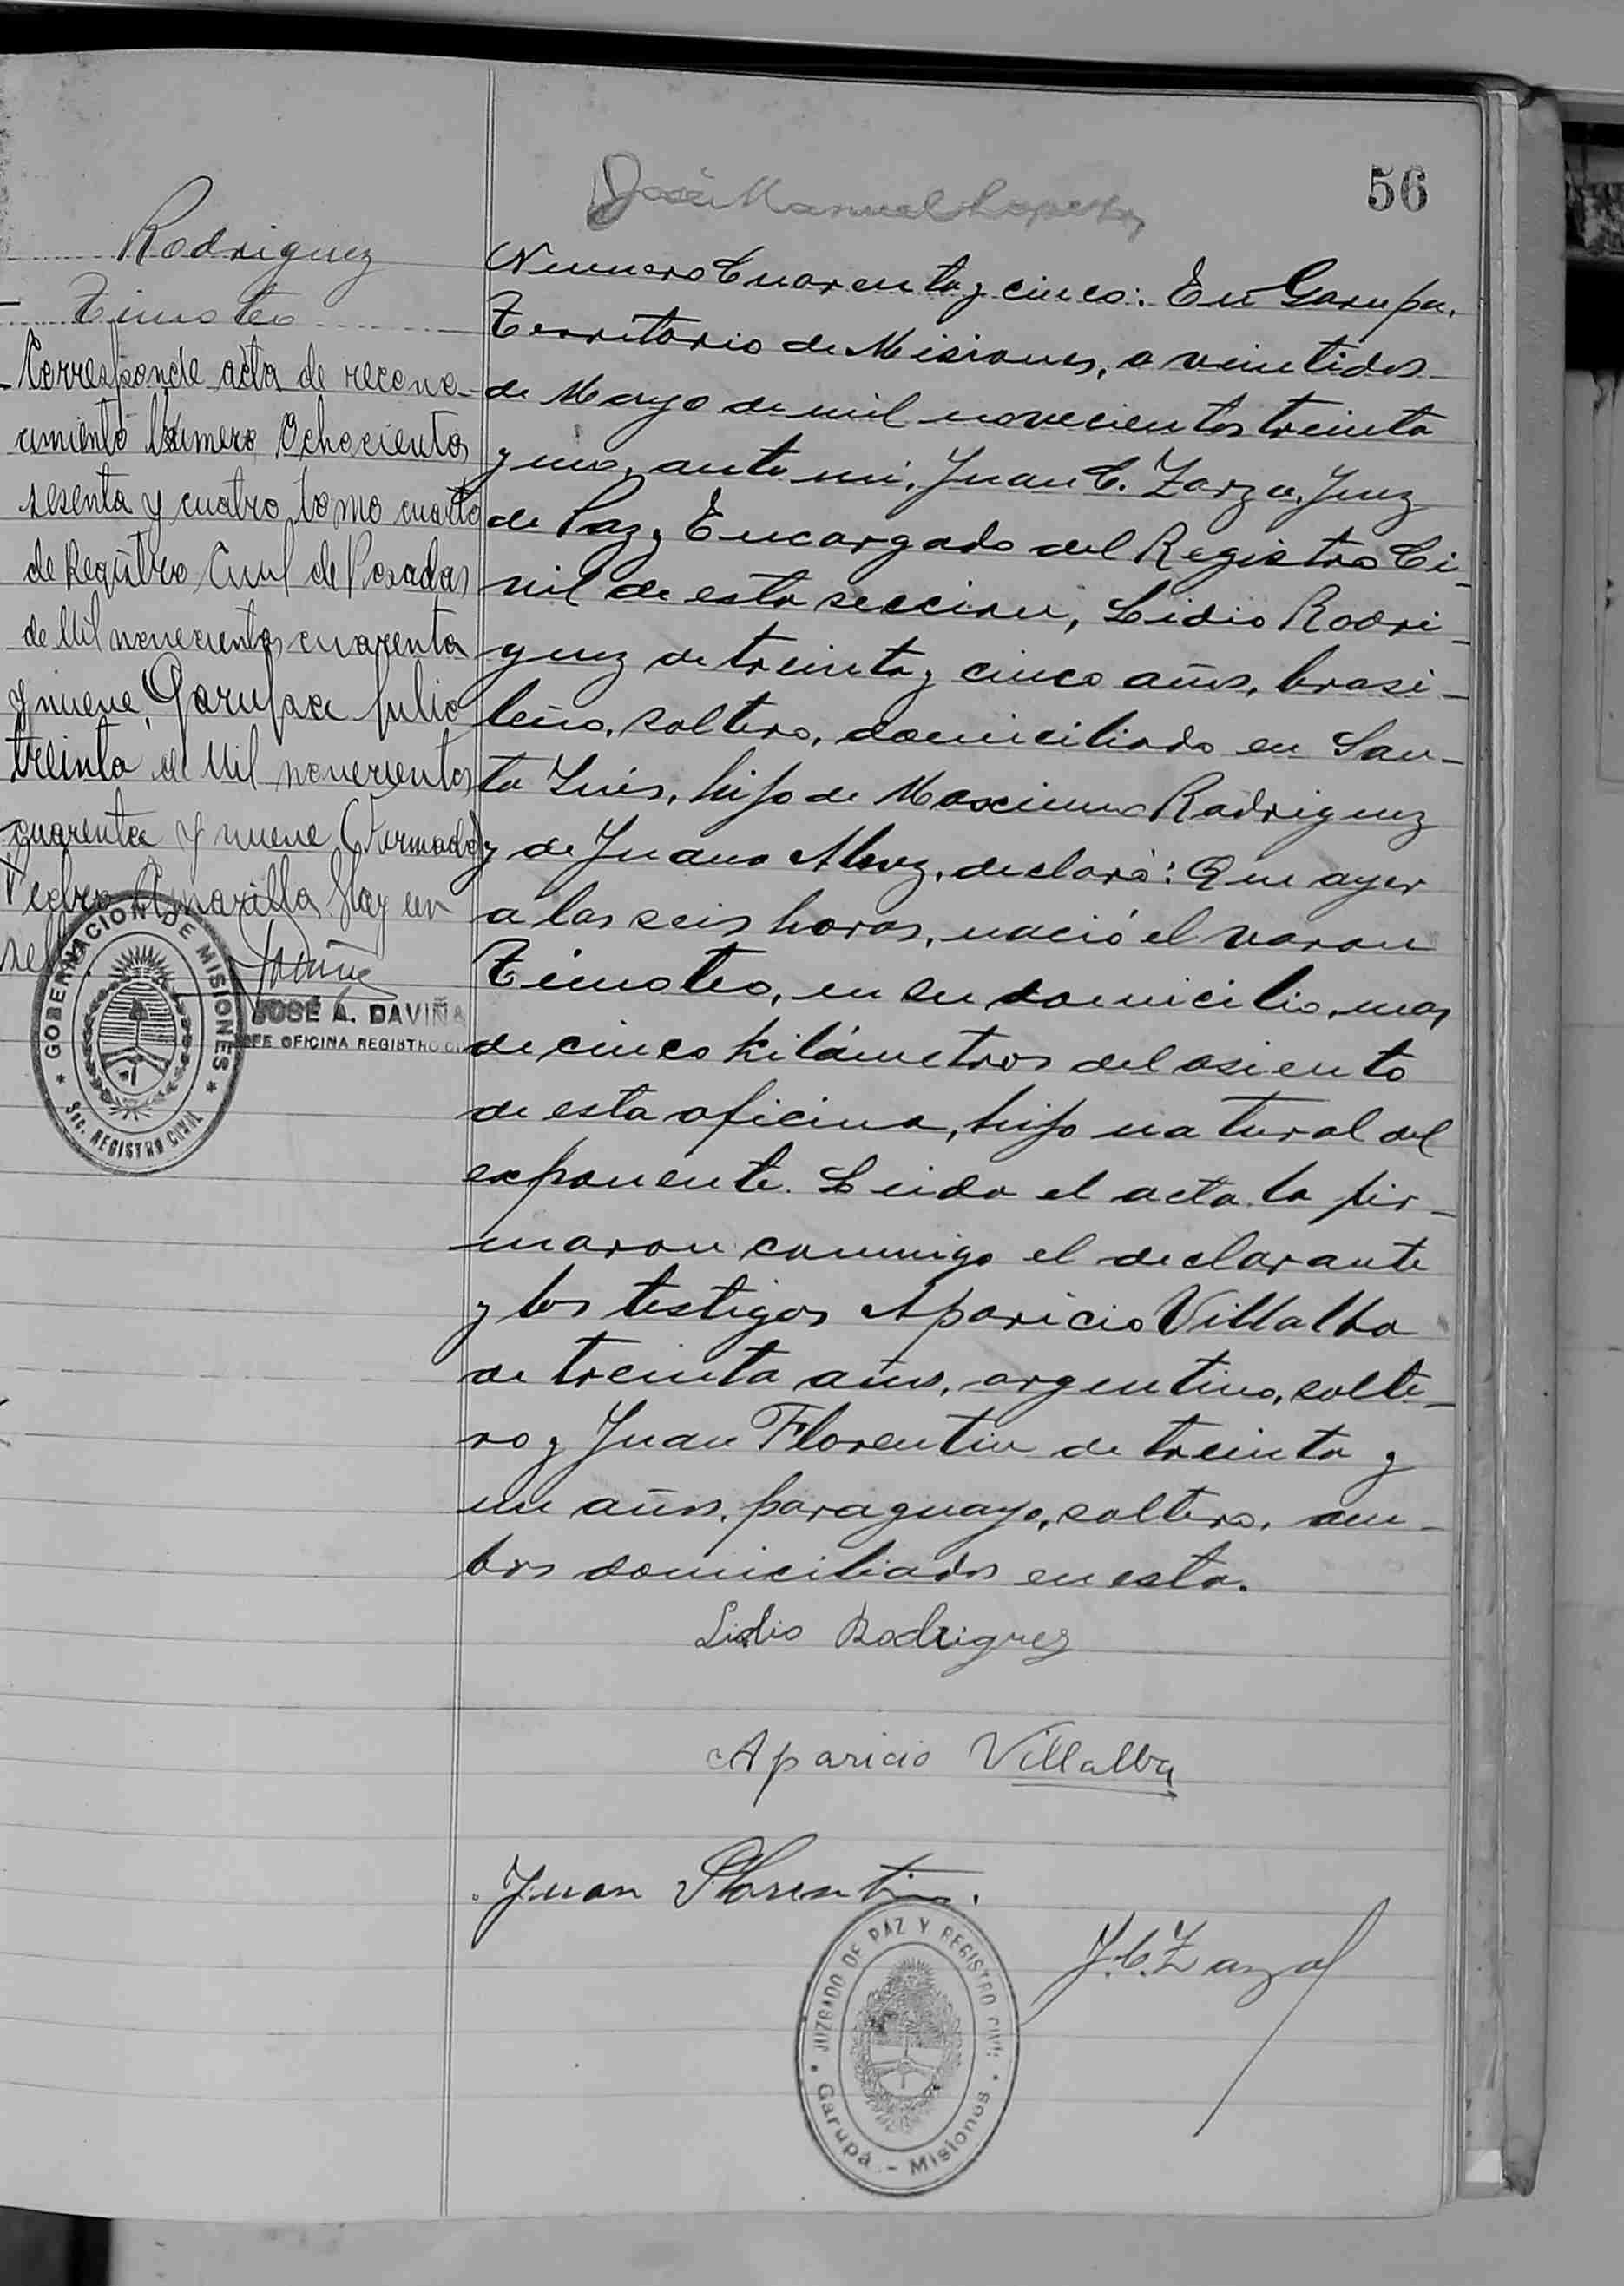 56
José Manuel Lopez
Rodriguez
Timoteo
Corresponde acta de recono-
cimiento Número Ochocientos
sesenta y cuatro tomo cuarto
de Registro Civil de Posadas
de Mil novecientos cuarenta
y nueve, Garupa Julio
treinta de Mil novecientos
cuarenta y nueve (Firmado)
Pedro Amarilla Hay un
sello.
GOBERNACION DE MISIONES
Sec. REGISTRO CIVIL
JOSÉ A. DAVIÑA
JEFE OFICINA REGISTRO CI
Numero Cuarenta y cinco: En Garupa,
Territorio de Misiones, a veintidos
de Mayo de mil novecientos treinta
y uno, ante mi, Juan C. Zarza, Juez
de Paz y Encargado del Registro Ci-
vil de esta seccion, Lidio Rodri-
guez de treinta y cinco años, brasi-
leño, soltero, domiciliado en San-
ta Inés, hijo de Maximo Rodriguez
y de Juana Alvez, declaró: Que ayer
a las seis horas, nació el varon
Timoteo, en su domicilio, mas
de cinco kilómetros del asiento
de esta oficina, hijo natural del
exponente. Leida el acta la fir-
maron conmigo el declarante
y los testigos Aparicio Villalba
de treinta años, argentino, solte-
ro y Juan Florentin de treinta y
un años, paraguayo, soltero, am-
bos domiciliados en esta.
Lidio Rodriguez
Aparicio Villalba
Juan Florentin.
J. C. Zarza
JUZGADO DE PAZ Y REGISTRO CIVIL
Garupá - Misiones